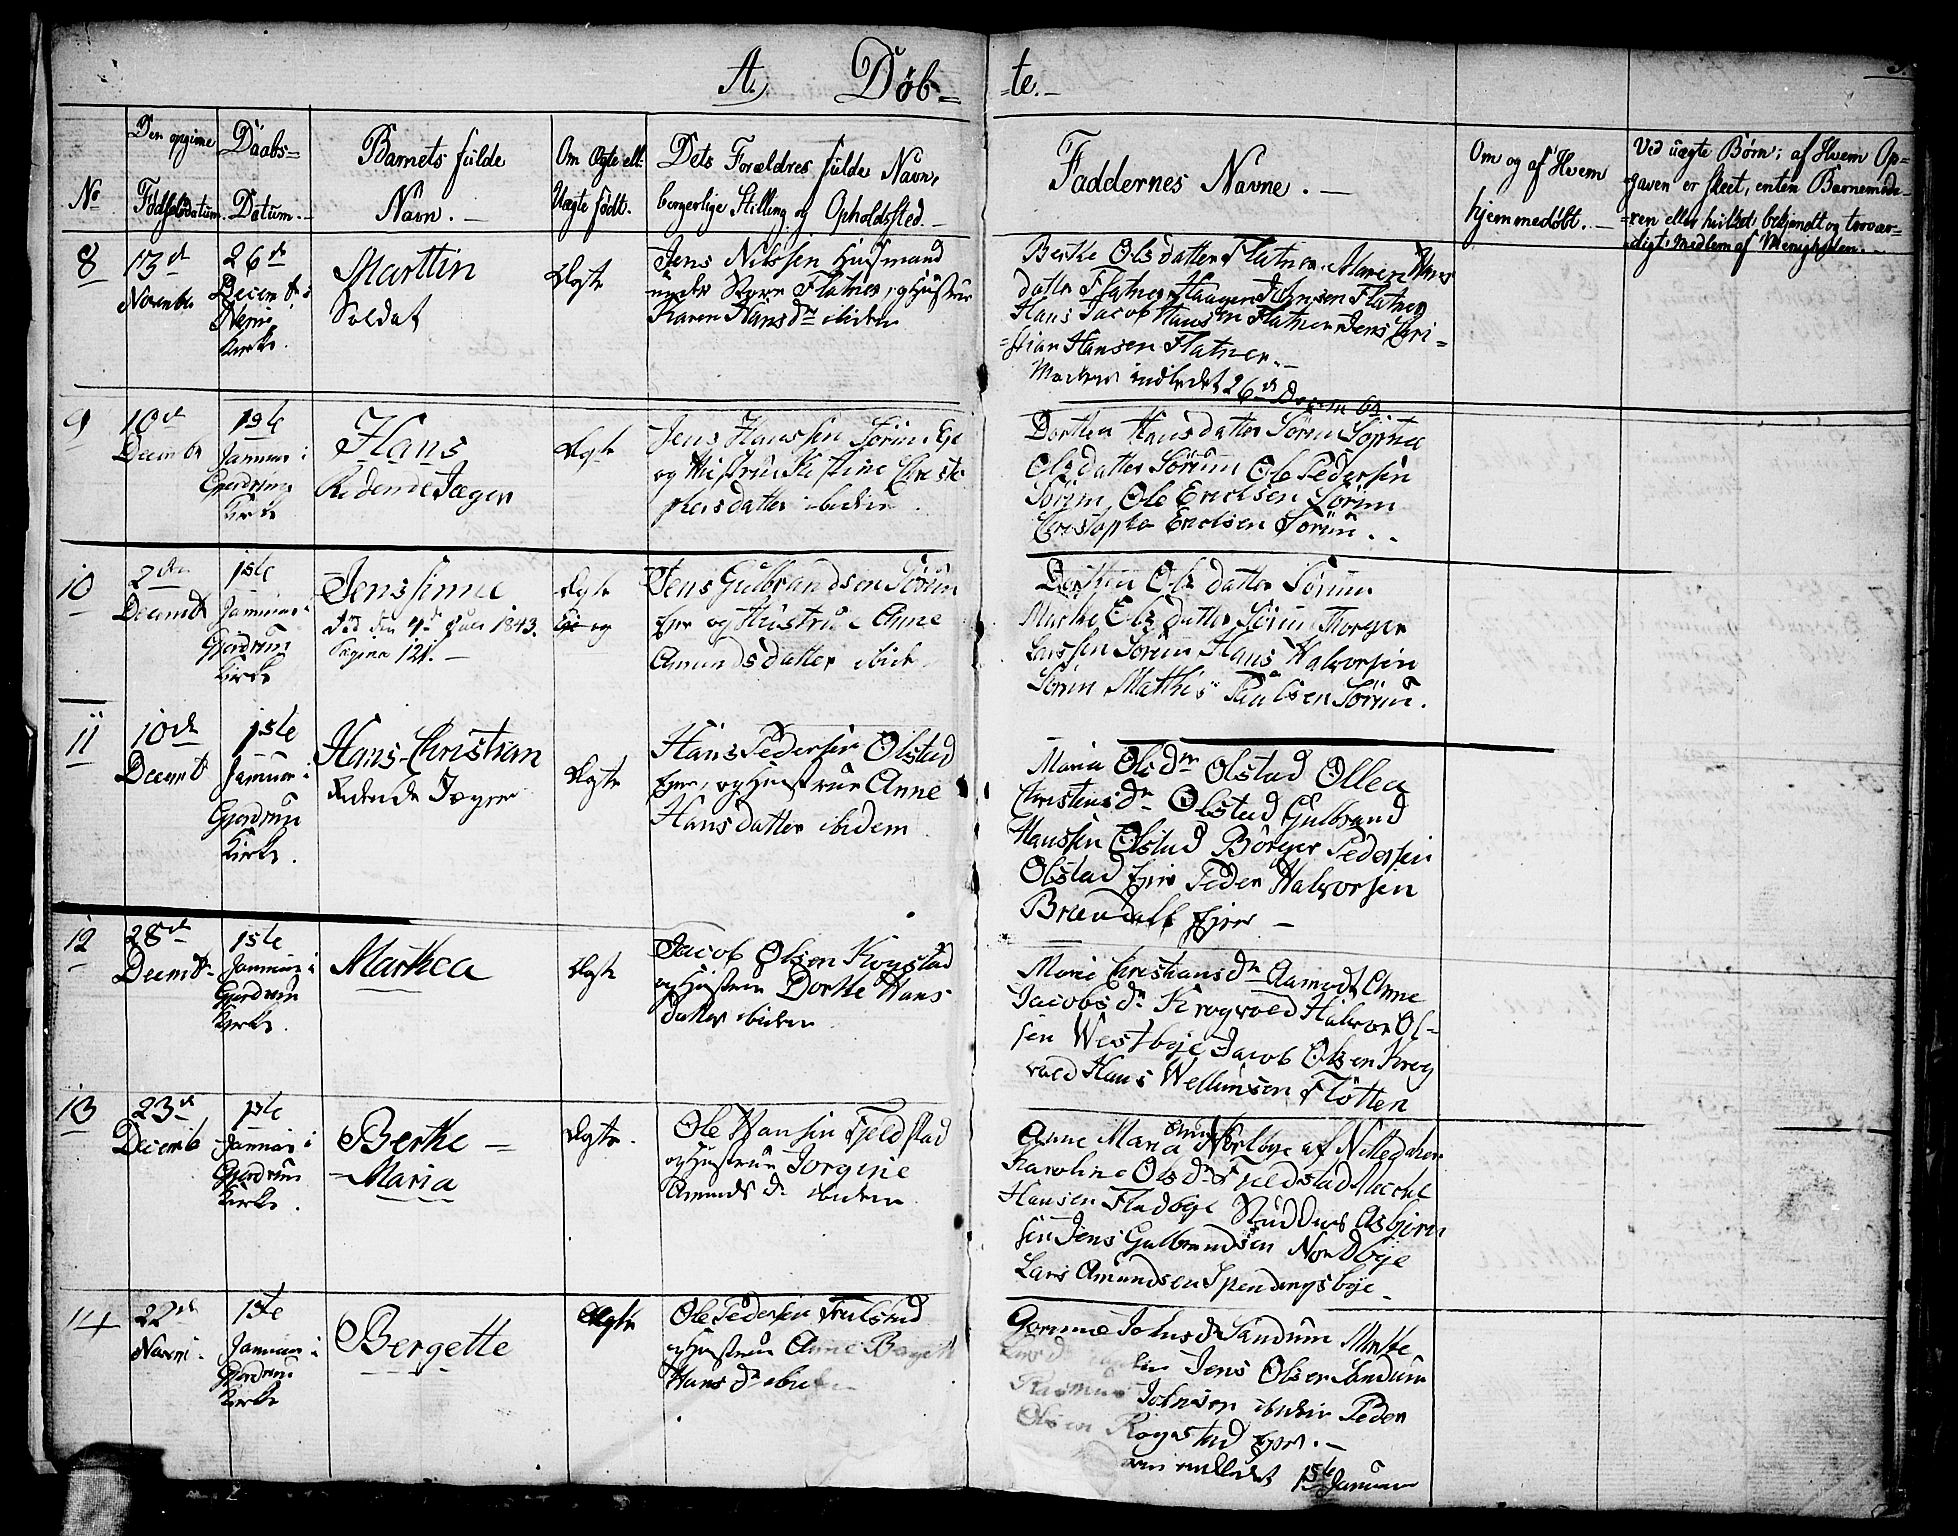 A. Döb=
=te.-
No
Den opgivne Födselsdatum.
Daabs=Datum.-
Barnets fulde Navn.-
Om Ægte ell: Uægte født.
Dets Forældres fulde Navn, borgerlige Stilling og Opholdssted.-
Faddernes Navne.-
Om og af Hvem hjemmedøbt.-
Ved uægte Börn; af Hvem Op=
gaven er skeet, enten Barnemode=
=ren eller hvilket bekjendt og trovær=
=digt Medlem af Menigheden.-
8
13de
November
26de
Decemb. i
Kirke.
Marttin
Soldat
Ægte
Jens Nilssen Huusmand
under Store Flatner, og Hustrue
Karen Hansdr ibidem
Berthe Olsdatter Flatner, Maren Hans
datter Flatner Haagen Johnsen Flatner
Hans Jacob Hansen Flatner Jens Chri=
=stian Hansen Flatner.-
Moderen indledet 26de Decembr.-
9
10de
Decembr
1ste
Januar i
Gjerdrums
Kirke
Hans
Ridende Jæger
Ægte
Jens Hanssen Sörum
og Hustrue Kistine Christo
phersdatter ibidem.
Dorthea Hansdatter Sörum Sophia
Olsdatter Sörum Ole Pedersen
Sörum, Ole Ericksen Sörum
Christopher Ericksen Sörum.
10
2den
Decembr
1ste
Januar i
Gjerdrum
Kirke
Jenssinne
död den 4de Juli 1843.
Pagina 121.-
Ægte
Jens Gulbrandsen Sörum
Eier og Hustrue Anne
Amundsdatter ibidem
Dorthea Olsdatter Sörum
Marthe Olsdatter Sörum Thorger
Larssen Sörum Hans Halvorsen
Sörum Mathis Paulsen Sörum.
11
10de
Decembr
1ste
Januar i
Gjerdrum
Kirke.
Hans-Christian
Ridende Jæger
Ægte
Hans Pedersen Olstad
Eier, og Hustrue Anne
Hansdatter ibidem
Maria Olsdr Olstad Ollea
Christiansdr Olstad Gulbrand
Hanssen Olstad Börger Pedersen
Olstad Eier Peder Halvorsen
Brændall Eier -
12
28de
Decembr
1ste
Januar i
Gjerdrum
Kirke.
Marthea
Ægte
Jacob Olsen Kogstad
og Hustrue Dorthe Hans
datter ibidem
Marie Christiansdr Aamodt Anne
Jacobsdr Krogvold Halvor Ol=
sen Westbye Jacob Olsen Krog
vold Hans Wellumsen Flötten
13
23de
Decemb
1ste
Januar i
Gjerdrum
Kirke.
Berthe -
-Maria
Ægte.
Ole Hansen Fjeldstad
og Hustrue Jorgine
Amundsdr ibidem
Anne Maria Nordbye af Nittedalen
Karoline Olsdr Fjeldstad
Hansen Fladbye Asbjörn
sen Jens Gulbrandsen Nordbye
Lars Amundsen Spendingsbye.
14
22de
Novem.
1ste
Januar i
Gjerdrum
Kirke
Bergette
Ægte
Ole Pedersen
og Hustrue Anne Bergitte
Hansdr ibidem
Johnsdr Sandum Marthe
Larsdr Jens Olsen Sandum
Rasmus Johnsen ibidem Peder
Olsen Rogstad Eier.-
indledet 1ste Januar